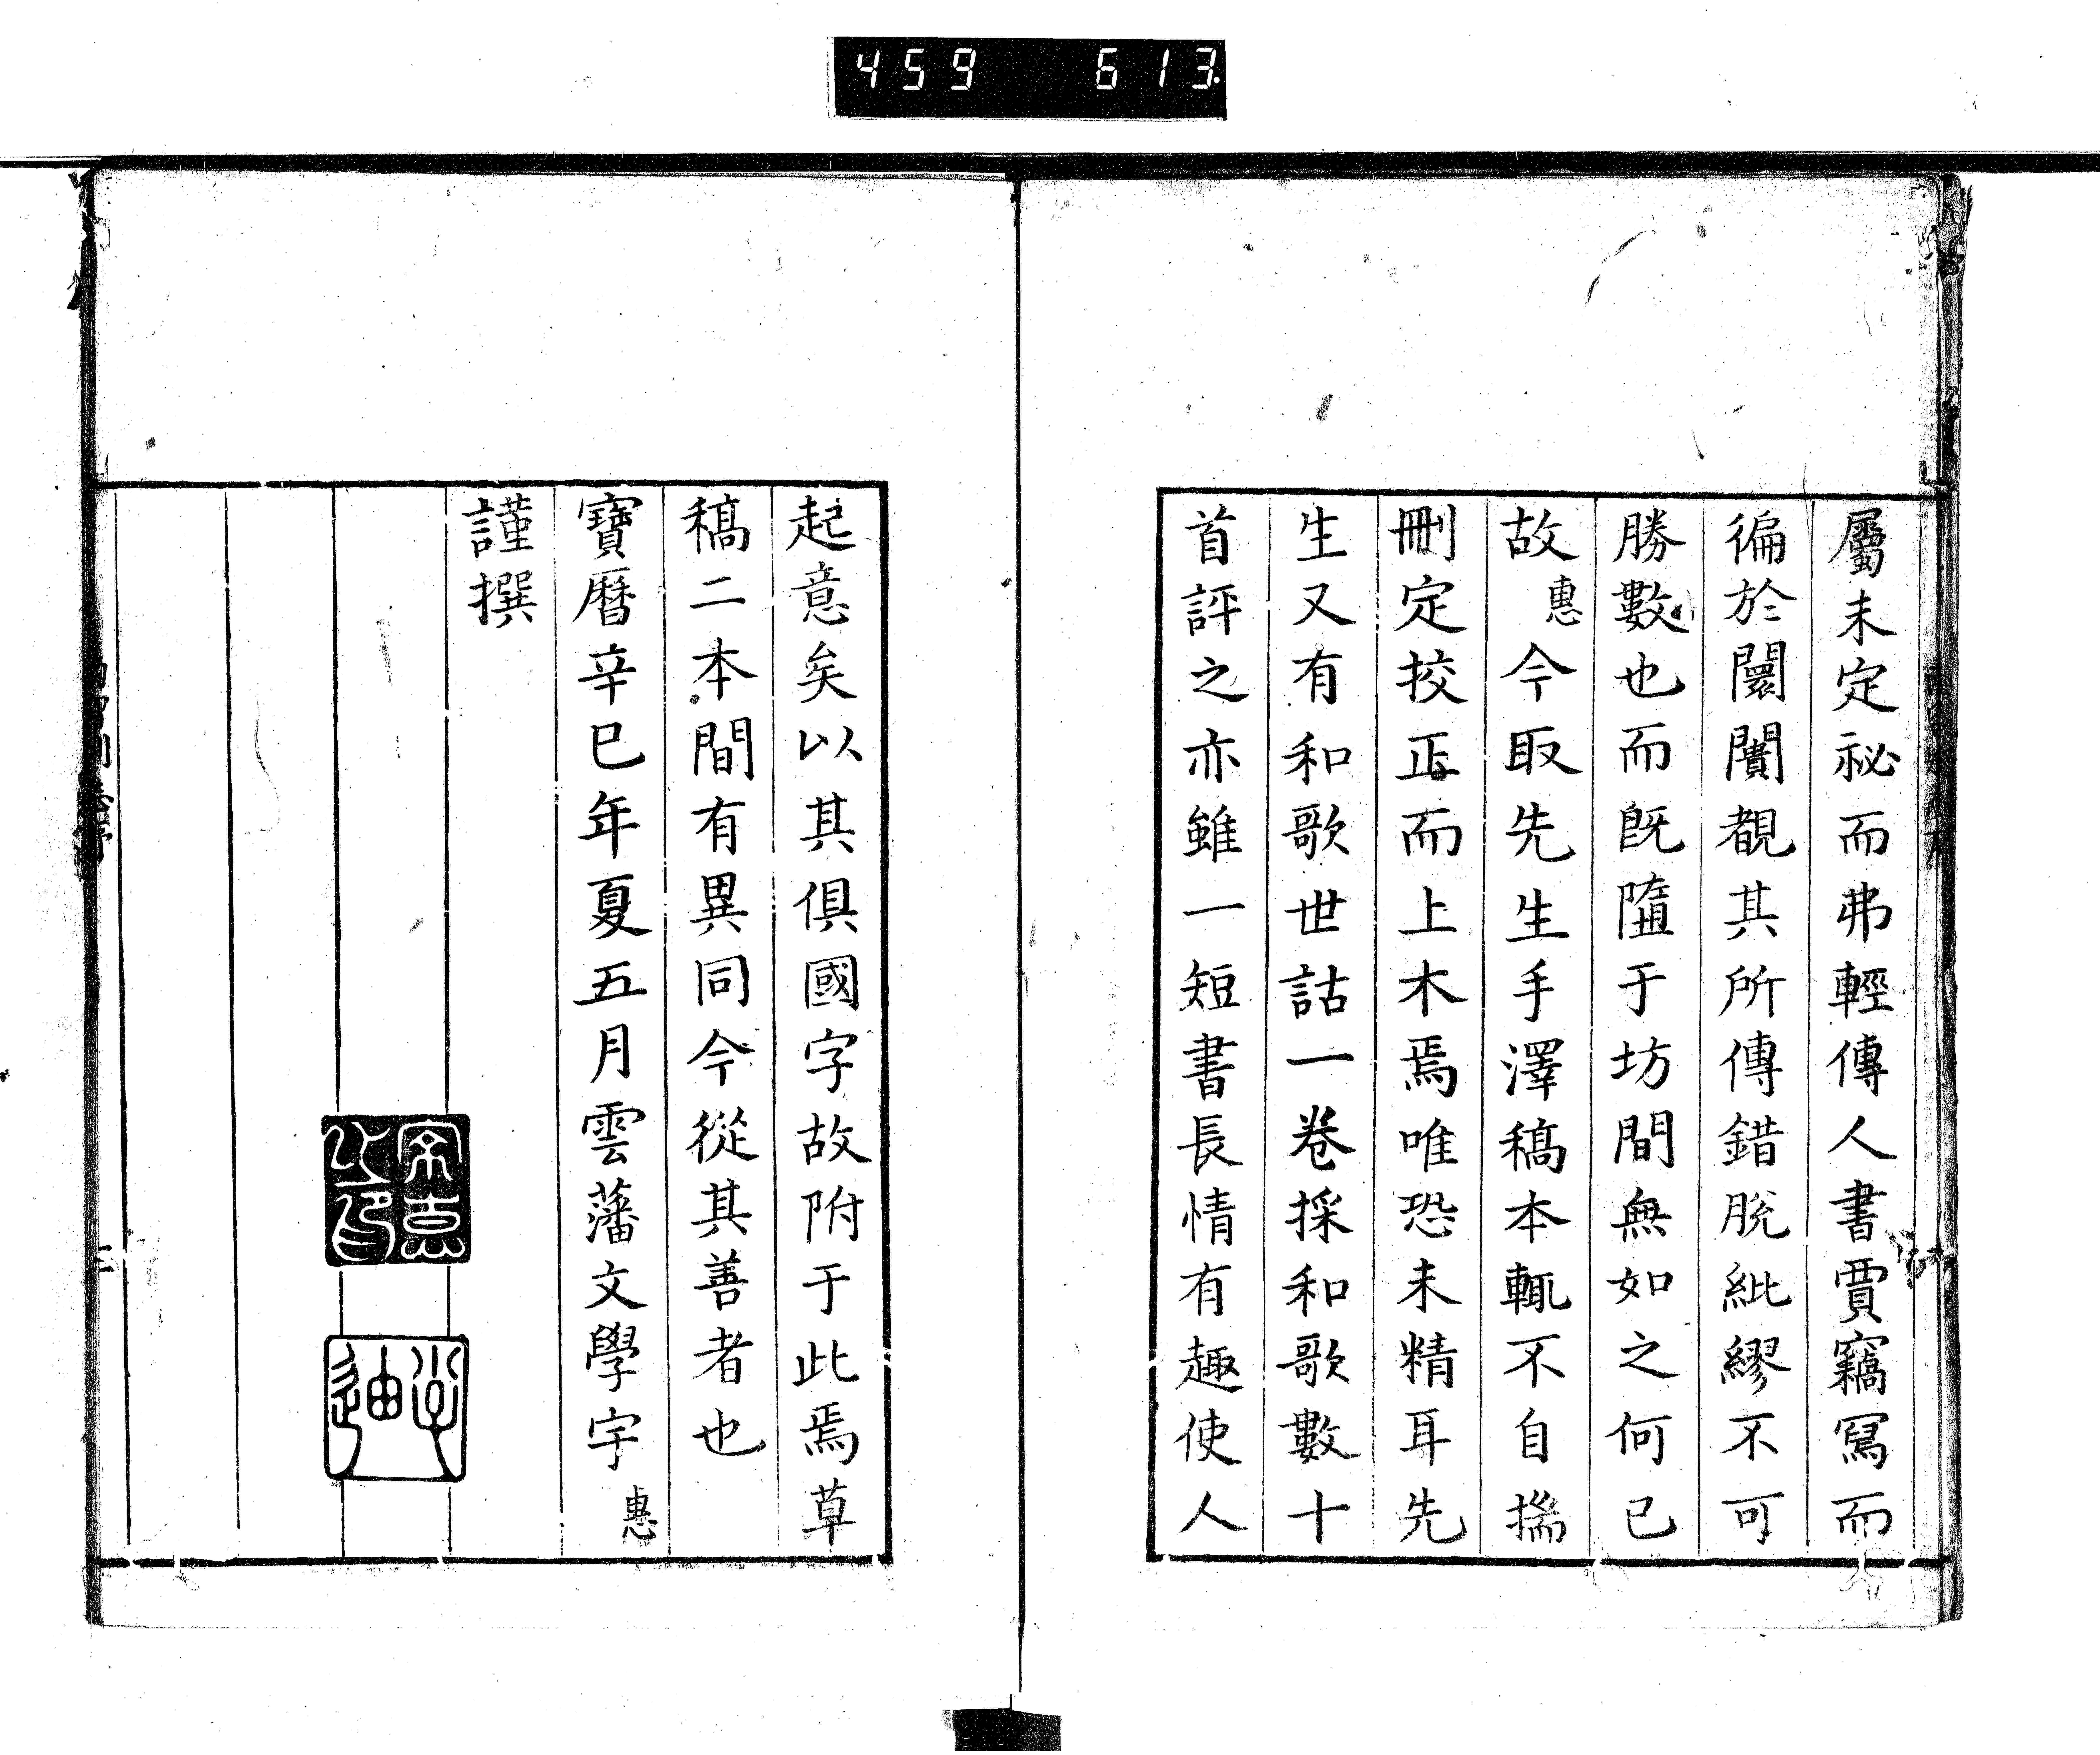 459 613
屬未定祕而弗輕傳人書賈竊冩而
徧於闤闠覩其所傳錯脫紕繆不可
勝數也而既陋于坊間無如之何已
故惠今取先生手澤稿本輒不自揣
刪定挍正而上木焉唯恐未精耳先
生又有和歌世詁一卷採和歌數十
首評之亦雖一短書長情有趣使人
起意矣以其俱國字故附于此焉草
稿二本間有異同今從其善者也
寶曆辛巳年夏五月雲藩文學宇惠
謹撰